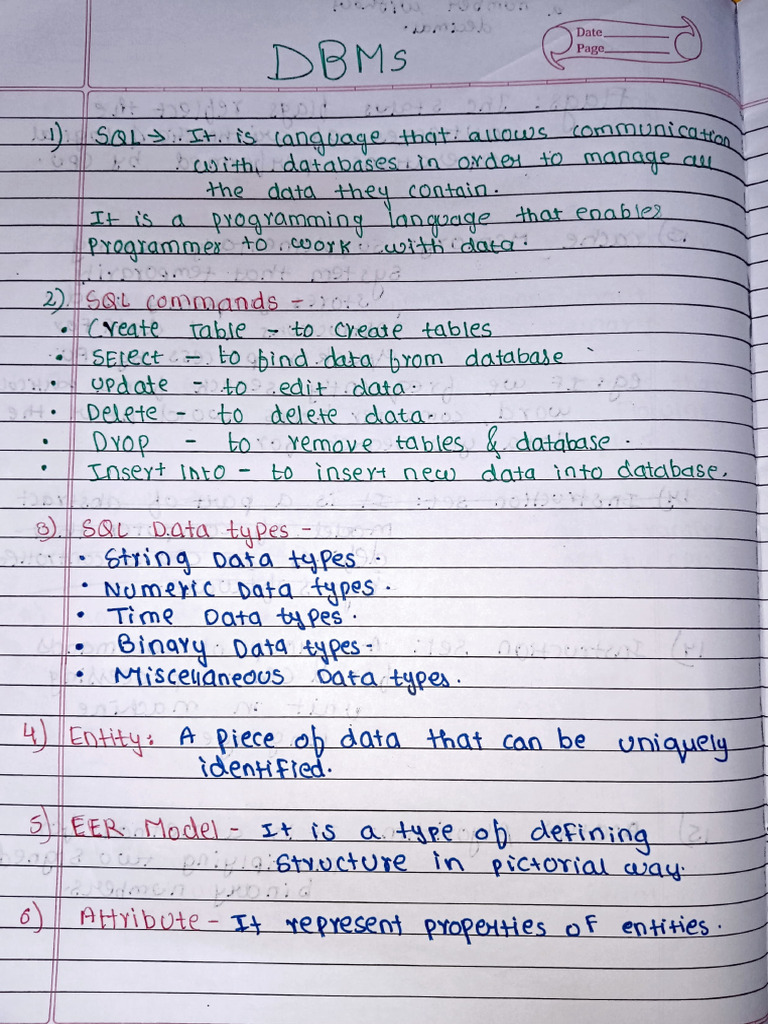 Date
Page
DBMs
1) SQL → It is language that allows communication
with databases in order to manage all
the data they contain.
It is a programming language that enables
programmer to work with data.
2) SQL commands -
• Create Table - to create tables
• SElect - to find data from database
• update - to edit data.
• Delete - to delete data.
• Drop - to remove tables & database.
• Insert into - to insert new data into database.
3) SQL Data types -
• String Data types.
• Numeric Data types.
• Time Data types.
• Binary Data types.
• Miscellaneous Data types.
4) Entity: A piece of data that can be uniquely
identified.
5) EER Model - It is a type of defining
structure in pictorial way.
6) Attribute - It represent properties of entities.